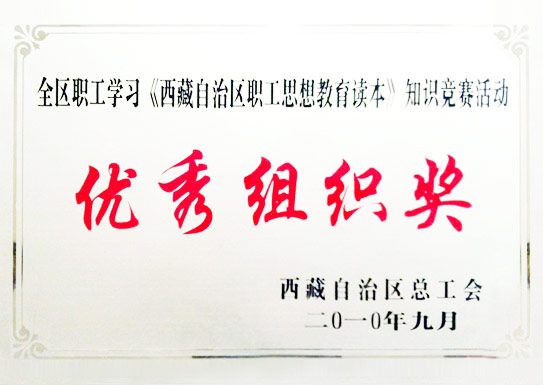 全区职工学习《西藏自治区职工思想教育读本》知识竞赛活动
优秀组织奖
西藏自治区总工会
二0一0年九月